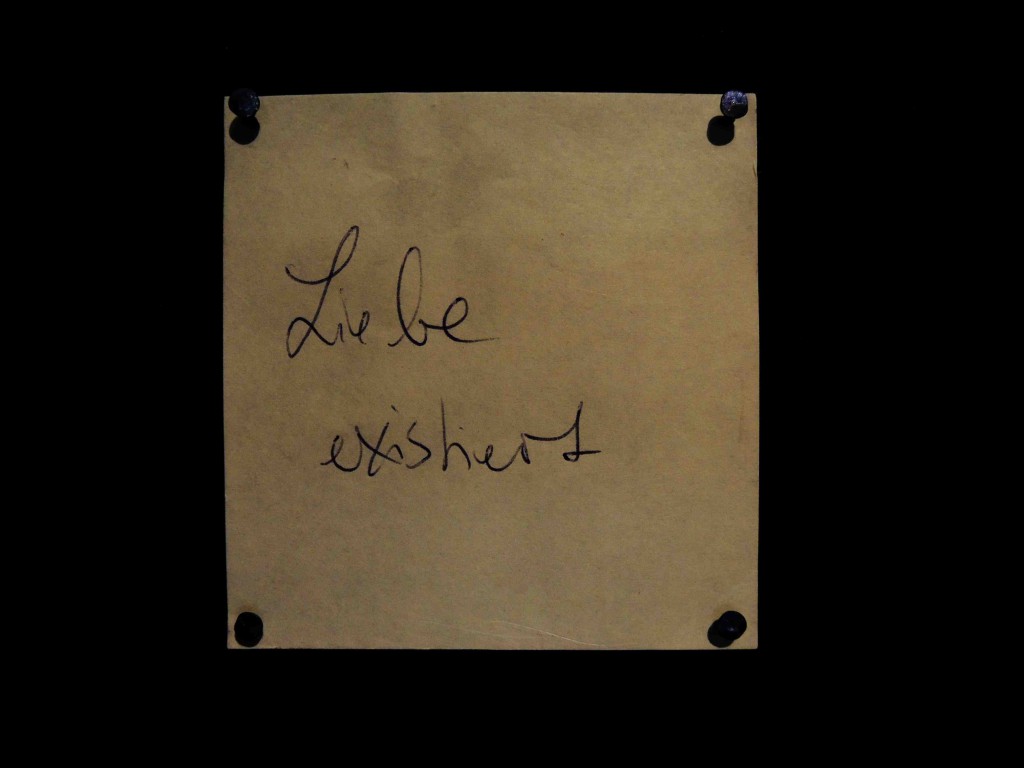 Liebe
existiert